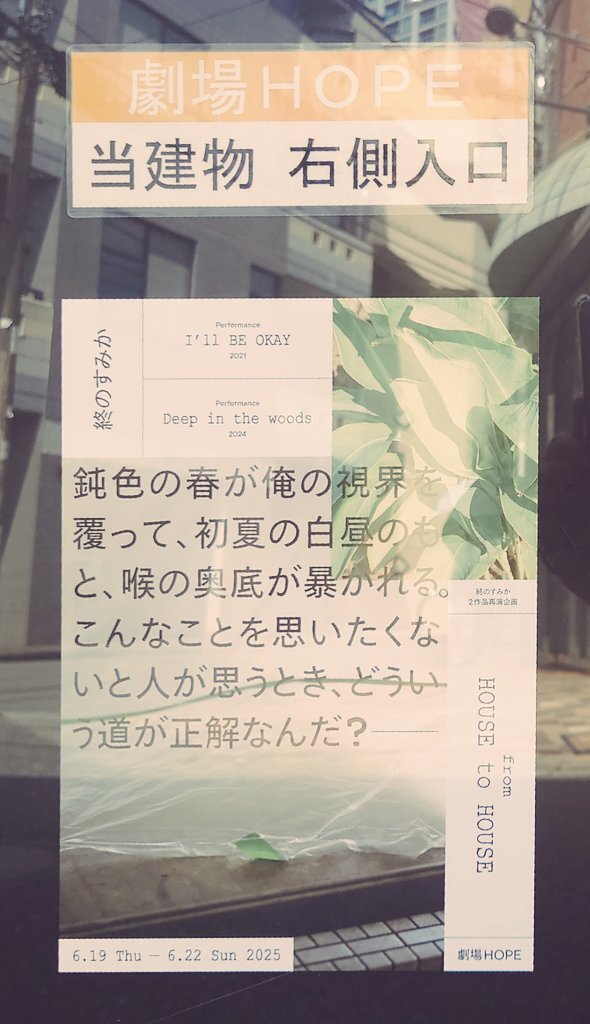 劇場HOPE
当建物 右側入口
終のすみか
Performance
I'll BE OKAY
2021
Performance
Deep in the woods
2024
鈍色の春が俺の視界を
覆って、初夏の白昼のも
と、喉の奥底が暴かれる。
こんなことを思いたくな
いと人が思うとき、どうい
う道が正解なんだ?――
終のすみか
2作品再演企画
from
HOUSE to HOUSE
6.19 Thu — 6.22 Sun 2025
劇場HOPE